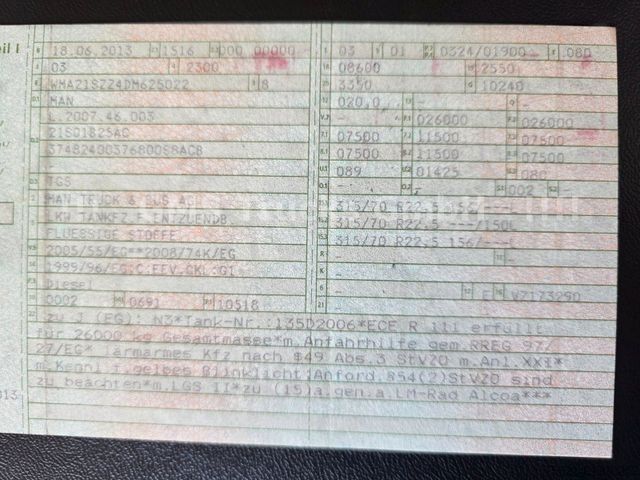 18.06.2013 1516 000 00000
03 2300
WMA21SZZ4DM625022 8
MAN
L.2007.46.003
21S01825AC
TGS
MAN TRUCK & BUS AG
LKW TANKFZ.F.ENTZUENDB.
FLUESSIGE STOFFE
2005/55/EG**2008/74K/EG
1999/96/EG;C;EEV,GKL:G1
Diesel
0002 0691 10518
03 01 0324/01900 080
08600 2550
10240
020,0 - -
- 026000 026000
07500 11500 07500
07500 11500 07500
089 01425 080
- - 002 -
315/70 R22.5
315/70 R22.5
315/70 R22.5 156/---L
zu J (EG): N3*Tank-Nr.:135D2006*ECE R 111 erfüllt
für 26000 kg Gesamtmasse*m.Anfahrhilfe gem.RREG 97/
27/EG* lärmarmes Kfz nach §49 Abs.3 StVZO m.Anl.XXI*
m.Kennl.f.gelbes Blinklicht;Anford.§54(2)StVZO sind
zu beachten*m.LGS II*zu (15)a.gen.a.LM-Rad Alcoa***